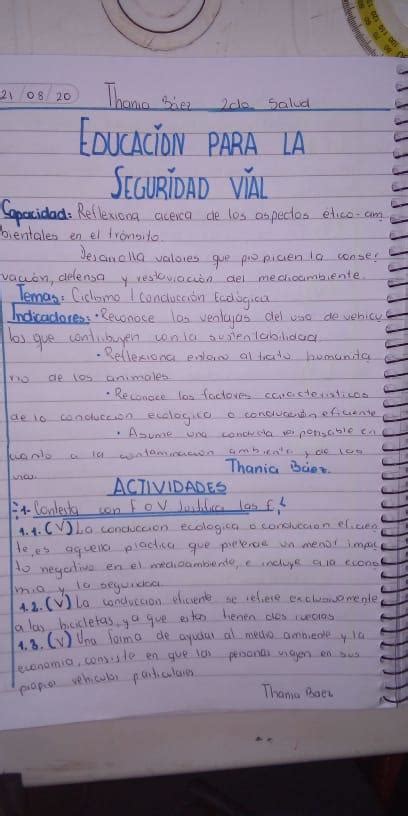 21/08/20 Thania Báez 2do Salud
EDUCACIÓN PARA LA
SEGURIDAD VIAL
Capacidad: Reflexiona acerca de los aspectos ético-am
bientales en el tránsito.
Desarrolla valores que propicien la conser
vación, defensa y restauración del medioambiente.
Temas: Ciclismo / Conducción Ecológica
Indicadores: • Reconoce las ventajas del uso de vehicu
los que contribuyen con la sustentabilidad
• Reflexiona entorno al trato humanita
rio de los animales
• Reconoce los factores característicos
de la conducción ecológica o conducción eficiente
• Asume una conducta responsable en
cuanto a la contaminación ambiental de las
Thania Báez.
ACTIVIDADES
1. Contesta con F o V Justifica las F.
1.1. (V) La conducción ecológica o conducción eficien
te, es aquella práctica que pretende un menor impac
to negativo en el medioambiente, e incluye a la econo
mía y la seguridad.
1.2. (V) La conducción eficiente se refiere exclusivamente
a las bicicletas, ya que estas tienen dos ruedas
1.3. (V) Una forma de ayudar al medio ambiente y la
economía, consiste en que las personas viajen en sus
propios vehículos particulares
Thania Báez